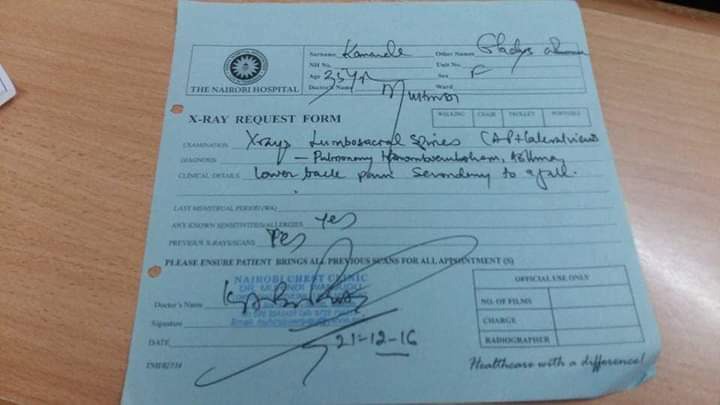 THE NAIROBI HOSPITAL
Surname Kamande Other Names Gladys
NH No. Unit No.
Age 35yr Sex F
Doctor's Name Ward
X-RAY REQUEST FORM
WALKING CHAIR TROLLEY PORTABLE
EXAMINATION Xrays Lumbosacral Spines (AP+Lateral views
DIAGNOSIS – Pulmonary Asthma
CLINICAL DETAILS Lower back pain Secondary to a fall.
LAST MENSTRUAL PERIOD (WK)
ANY KNOWN SENSITIVITIES/ALLERGIES Yes
PREVIOUS X-RAYS/SCANS Yes
PLEASE ENSURE PATIENT BRINGS ALL PREVIOUS SCANS FOR ALL APPOINTMENT (S)
NAIROBI CHEST CLINIC
Doctor's Name
Signature
DATE 21-12-16
OFFICIAL USE ONLY
NO. OF FILMS
CHARGE
RADIOGRAPHER
Healthcare with a difference!